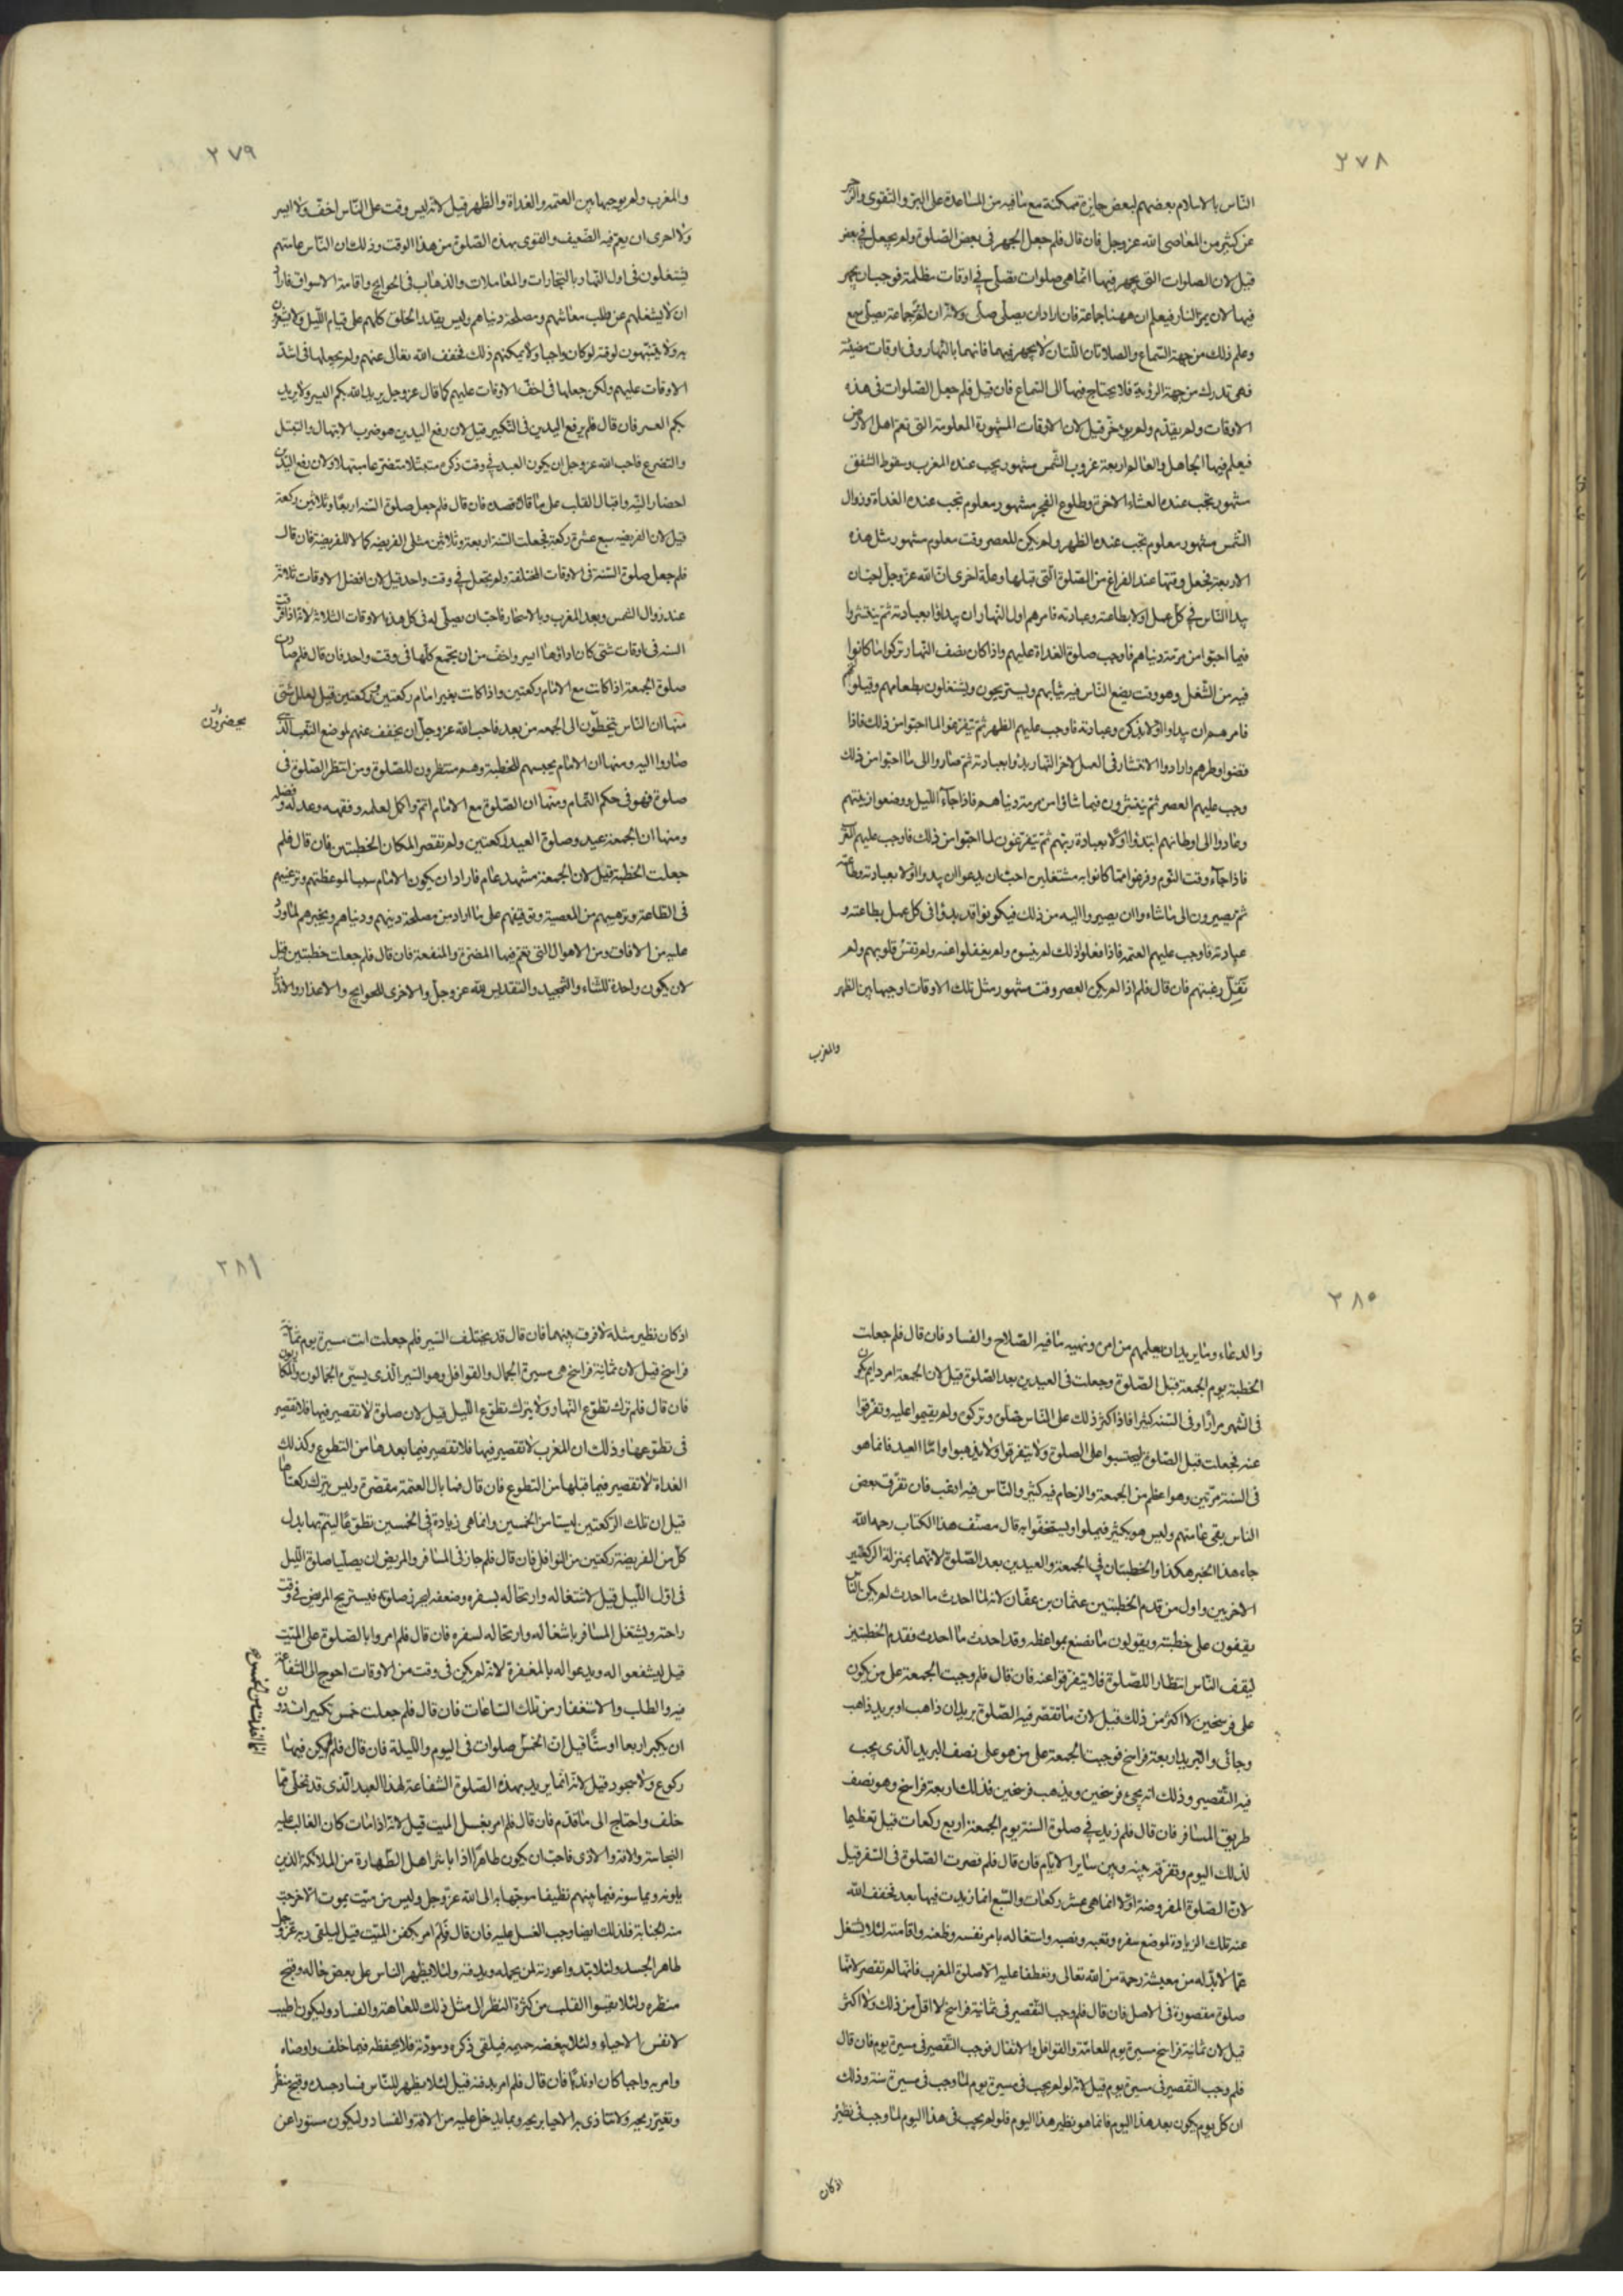 ٢٧٨
الناس بالاسلام بعضهم لبعض جايزة ممكنة مع ما فيه من المساعدة على البر والتقوى والزجر
عن كثير من المعاصى الله عز وجل فان قال فلم جعل الجهر فى بعض الصلوة ولم يجعل فى بعض
قيل لان الصلوات التى يجهر فيها انما هى صلوات تصلى فى اوقات مظلمة فوجب ان يجهر
فيها لان يمر المار فيعلم ان ههنا جماعة فان اراد ان يصلى صلى ولانه ان لم ير جماعة تصلى سمع
وعلم ذلك من جهة السماع والصلاتان اللتان لا يجهر فيهما فانهما بالنهار وفى اوقات مضيئة
فهى تدرك من جهة الرؤية فلا يحتاج فيها الى السماع فان قيل فلم جعل الصلوات فى هذه
الاوقات ولم يقدم ولم يؤخر قيل لان الاوقات المشهورة المعلومة التى تعم اهل الارض
فيعلم فيها الجاهل والعالم اربعة غروب الشمس مشهور يجب عنده المغرب وسقوط الشفق
مشهور تجب عنده العشاء الاخرة وطلوع الفجر مشهور معلوم تجب عنده الغداة وزوال
الشمس مشهور معلوم تجب عنده الظهر ولم يكن للعصر وقت معلوم مشهور مثل هذه
الاربعة فجعل وقتها عند الفراغ من الصلوة التى قبلها وعلة اخرى ان الله عز وجل احب ان
يبدا الناس فى كل عمل اولا بطاعته وعبادته فامرهم اول النهار ان يبداوا بعبادته ثم ينتشروا
فيما احبوا من مرمة دنياهم فاوجب صلوة الغداة عليهم واذا كان نصف النهار تركوا ما كانوا
فيه من الشغل وهو وقت يضع الناس فيه ثيابهم ويستريحون ويشتغلون بطعامهم وقيلولتهم
فامرهم ان يبداوا اولا بذكره وعبادته فاوجب عليهم الظهر ثم يتفرغوا لما احبوا من ذلك فاذا
قضوا وطرهم وارادوا الانتشار فى العمل لاخر النهار بدؤا بعبادته ثم صاروا الى ما احبوا من ذلك
وجب عليهم العصر ثم ينتشرون فيما شاؤا من مرمة دنياهم فاذا جآء الليل ووضعوا زينتهم
وعادوا الى اوطانهم ابتدؤا اولا بعبادة ربهم ثم يتفرغون لما احبوا من ذلك فاوجب عليهم المغرب
فاذا جآء وقت النوم وفرغوا مما كانوا به مشتغلين احب ان يبدوا اولا بعبادته وطاعته
ثم يصيرون الى ما شاء وا ان يصيروا اليه من ذلك فيكونوا قد بدؤا فى كل عمل بطاعته و
عبادته فاوجب عليهم العتمة فاذا فعلوا ذلك لم ينسوه ولم يغفلوا عنه ولم تقس قلوبهم ولم
تقل رغبتهم فان قال فلم اذا لم يكن العصر وقت مشهور مثل تلك الاوقات اوجبها بين الظهر
والمغرب
٢٧٩
والمغرب ولم يوجبها بين العتمة والغداة والظهر قيل لانه ليس وقت على الناس اخف ولا ايسر
ولا احرى ان يعم فيه الضعيف والقوى بهذه الصلوة من هذا الوقت وذلك ان الناس عامتهم
يشتغلون فى اول النهار بالتجارات والمعاملات والذهاب فى الحوايج واقامة الاسواق فاراد
ان لا يشغلهم عن طلب معاشهم ومصلحة دنياهم وليس يقدر الخلق كلهم على قيام الليل ولا يشعرون
به ولا ينتبهون لوقته لو كان واجبا ولا يمكنهم ذلك فخفف الله تعالى عنهم ولم يجعلها فى اشد
الاوقات عليهم ولكن جعلها فى اخف الاوقات عليهم كما قال عز وجل يريد الله بكم اليسر ولا يريد
بكم العسر فان قال فلم يرفع اليدين فى التكبير قيل لان رفع اليدين هو ضرب الابتهال والتبتل
والتضرع فاحب الله عز وجل ان يكون العبد فى وقت ذكره متبتلا متضرعا مبتهلا ولان رفع اليدين
احضار النية واقبال القلب على ما قال وقصده فان قال فلم جعل صلوة السنة اربعا وثلاثين ركعة
قيل لان الفريضة سبع عشرة ركعة فجعلت السنة اربعة وثلاثين مثلى الفريضة كمالا للفريضة فان قال
فلم جعل صلوة السنة فى الاوقات المختلفة ولم يجعل فى وقت واحد قيل لان افضل الاوقات ثلاثة
عند زوال الشمس وبعد المغرب وبالاسحار فاحب ان يصلى له فى كل هذه الاوقات الثلاثة لانه اذا فرقت
السنة فى اوقات شتى كان اداؤها ايسر واخف من ان يجتمع كلها فى وقت واحد فان قال فلم صارت
صلوة الجمعة اذا كانت مع الامام ركعتين واذا كانت بغير امام ركعتين وركعتين قيل لعلل شتى
منها ان الناس يتخطون الى الجمعة من بعد فاحب الله عز وجل ان يخفف عنهم لموضع التعب الذى
يحضرون
صاروا اليه ومنها ان الامام يحبسهم للخطبة وهم منتظرون للصلوة ومن انتظر الصلوة فى
صلوة فهو فى حكم التمام ومنها ان الصلوة مع الامام اتم واكمل لعلمه وفقهه وعدله وفضله
ومنها ان الجمعة عيد وصلوة العيد ركعتين ولم تقصر لمكان الخطبتين فان قال فلم
جعلت الخطبة قيل لان الجمعة مشهد عام فاراد ان يكون الامام سببا لموعظتهم وترغيبهم
فى الطاعة وترهيبهم من المعصية وتوقيفهم على ما اراد من مصلحة دينهم ودنياهم ويخبرهم بما ورد
عليه من الافاق ومن الاهوال التى تعم فيها المضرة والمنفعة فان قال فلم جعلت خطبتين قيل
لان يكون واحدة للثناء والتمجيد والتقديس لله عز وجل والاخرى للحوايج والاعذار والانذار
٢٨٠
والدعاء وما يريد ان يعلمهم من امره ونهيه ما فيه الصلاح والفساد فان قال فلم جعلت
الخطبة يوم الجمعة قبل الصلوة وجعلت فى العيدين بعد الصلوة قيل لان الجمعة امر دايم يكون
فى الشهر مرارا وفى السنة كثيرا فاذا كثر ذلك على الناس صلوا وتركوه ولم يقيموا عليه وتفرقوا
عنه فجعلت قبل الصلوة ليحتبسوا على الصلوة ولا يتفرقوا ولا يذهبوا واما العيد فانما هو
فى السنة مرتين وهو اعظم من الجمعة والزحام فيه كثير والناس فيه ارغب فان تفرق بعض
الناس بقى عامتهم وليس هو بكثير فيملوا ويستخفوا به قال مصنف هذا الكتاب رحمه الله
جاء هذا الخبر هكذا والخطبتان فى الجمعة والعيدين بعد الصلوة لانهما بمنزلة الركعتين
الاخريين واول من قدم الخطبتين عثمان بن عفان لانه لما احدث ما احدث لم يكن الناس
يقفون على خطبته ويقولون ما نصنع بمواعظه وقد احدث ما احدث فقدم الخطبتين
ليقف الناس انتظارا للصلوة فلا يتفرقوا عنه فان قال فلم وجبت الجمعة على من يكون
على فرسخين لا اكثر من ذلك قيل لان ما تقصر فيه الصلوة بريدان ذاهب او بريد ذاهب
وجائى والبريد اربعة فراسخ فوجبت الجمعة على من هو على نصف البريد الذى يجب
فيه التقصير وذلك انه يجئ فرسخين ويذهب فرسخين فذلك اربعة فراسخ وهو نصف
طريق المسافر فان قال فلم زيد فى صلوة السنة يوم الجمعة اربع ركعات قيل تعظيما
لذلك اليوم وتفرقة بينه وبين ساير الايام فان قال فلم قصرت الصلوة فى السفر قيل
لان الصلوة المفروضة اولا انما هى عشر ركعات والسبع انما زيدت فيها بعد فخفف الله
عنه تلك الزيادة لموضع سفره وتعبه ونصبه واشتغاله بامر نفسه وظعنه واقامته لئلا يشتغل
عما لا بد له من معيشته رحمة من الله تعالى وتعطفا عليه الا صلوة المغرب فانها لم تقصر لانها
صلوة مقصورة فى الاصل فان قال فلم وجب التقصير فى ثمانية فراسخ لا اقل من ذلك ولا اكثر
قيل لان ثمانية فراسخ مسيرة يوم للعامة والقوافل والاثقال فوجب التقصير فى مسيرة يوم فان قال
فلم وجب التقصير فى مسيرة يوم قيل لانه لو لم يجب فى مسيرة يوم لما وجب فى مسيرة سنة وذلك
ان كل يوم يكون بعد هذا اليوم فانما هو نظير هذا اليوم فلو لم يجب فى هذا اليوم لما وجب فى نظيره
اذ كان
٢٨١
اذ كان نظيره مثله لا فرق بينهما فان قال قد يختلف السير فلم جعلت انت مسيرة يوم ثمانية
فراسخ قيل لان ثمانية فراسخ هى مسيرة الجمال والقوافل وهو السير الذى يسير الجمالون والمكارون
فان قال فلم ترك تطوع النهار ولا يترك تطوع الليل قيل لان صلوة لا تقصير فيها فلا تقصير
فى تطوعها وذلك ان المغرب لا تقصير فيها فلا تقصير فيما بعدها من التطوع وكذلك
الغداة لا تقصير فيما قبلها من التطوع فان قال فما بال العتمة مقصرة وليس يترك ركعتاها
قيل ان تلك الركعتين ليستا من الخمسين وانما هى زيادة فى الخمسين تطوعا ليتم بها بدل
كل من الفريضة ركعتين من النوافل فان قال فلم جاز فى المسافر والمريض ان يصليا صلوة الليل
فى اول الليل قيل لاشتغاله وارتحاله بسفره وضعفه ليحرز صلوته فيستريح المريض فى وقت
راحته ويشتغل المسافر باشغاله وارتحاله لسفره فان قال فلم امروا بالصلوة على الميت
قيل ليشفعوا له ويدعوا له بالمغفرة لانه لم يكن فى وقت من الاوقات احوج الى الشفاعة
فيه والطلب والاستغفار من تلك الساعات فان قال فلم جعلت خمس تكبيرات دون
ان يكبر اربعا او ستا قيل ان الخمس صلوات فى اليوم والليلة فان قال فلم لم يكن فيها
ركوع ولا سجود قيل لانه انما يريد بهذه الصلوة الشفاعة لهذا العبد الذى قد تخلى مما
خلف واحتاج الى ما قدم فان قال فلم امر بغسل الميت قيل لانه اذا مات كان الغالب عليه
النجاسة والافة والاذى فاحب ان يكون طاهرا اذا باشر اهل الطهارة من الملائكة الذين
يلونه ويماسونه فيما بينهم نظيفا موجها به الى الله عز وجل وليس من ميت يموت الا خرجت
منه الجنابة فلذلك ايضا وجب الغسل عليه فان قال فلم امر بكفن الميت قيل ليلقى ربه عز وجل
طاهر الجسد ولئلا تبدوا عورته لمن يحمله ويدفنه ولئلا يظهر الناس على بعض حاله وقبح
منظره ولئلا يقسوا القلب من كثرة النظر الى مثل ذلك للعاهة والفساد وليكون اطيب
لانفس الاحياء ولئلا يبغضه حميمه فيلقى ذكره ومودته فلا يحفظه فيما خلف واوصاه
وامر به واجبا كان او ندبا فان قال فلم امر بدفنه قيل لئلا يظهر للناس فساد جسده وقبح منظره
وتغير ريحه ولا تتاذى به الاحيا بريحه وبما يدخل عليه من الافة والفساد وليكون مستورا عن